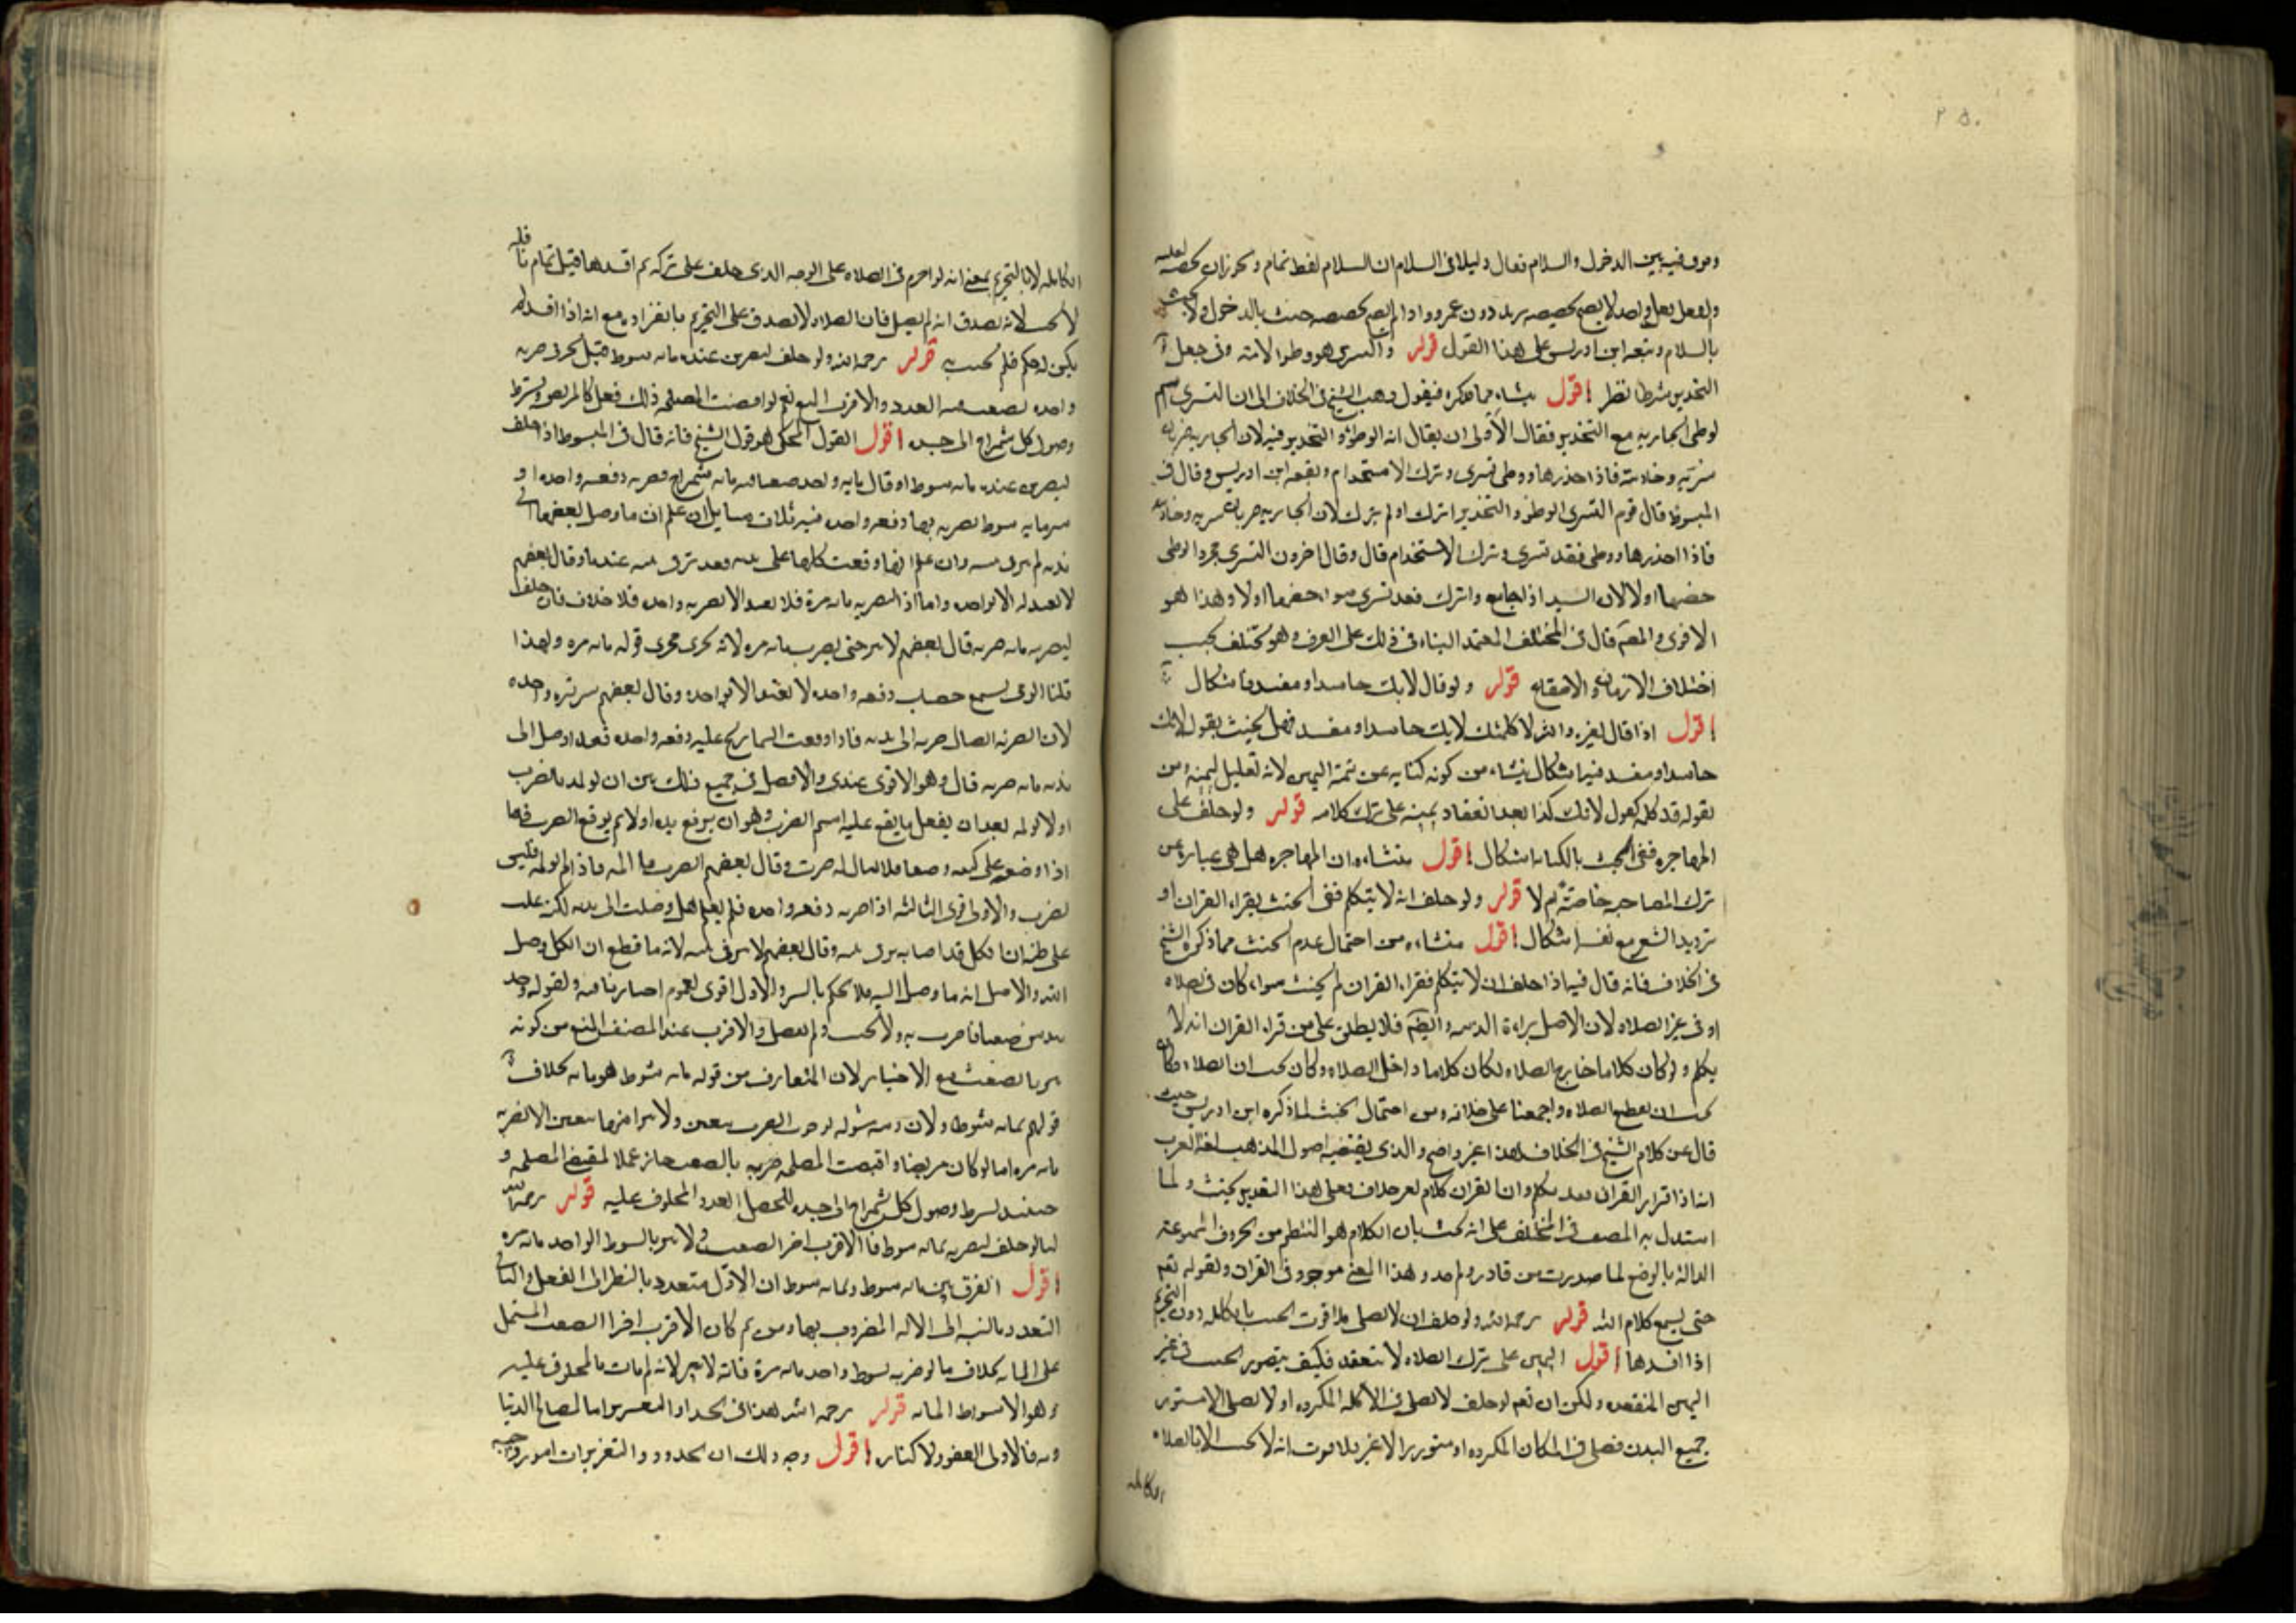 وفرق فيه بين الدخول والسلام فقال دليلنا في السلام ان السلام لفظ تمام ويجوز ان يخصه
والفعل فعل واحد لا يصح تخصيصه بزيد دون عمرو واذا لم يصح تخصيصه حنث بالدخول ولا يحنث
بالسلام وتبعه ابن ادريس على هذا القول قوله والتسري هو وطؤ الامة وفي جعل
التخدير شرطا نظر اقول ينشاء مما ذكره فيقول ذهب الشيخ في الخلاف الى ان التسري اسم
لوطى الجارية مع التخدير فقال الاولى ان يقال انه الوطؤ والتخدير فيه لان الجارية ضربان
سرية وخادمة فاذا خدرها ووطى تسرى وترك الاستخدام وتبعه ابن ادريس وقال في
المبسوط قال قوم التسري الوطؤ والتخدير انزل او لم ينزل لان الجارية ضربان سرية وخادمة
فاذا اخدرها ووطى فقد تسرى وترك الاستخدام قال وقال اخرون التسري مجرد الوطى
حصنها اولا لان السيد اذا جامع وانزل فقد تسرى سواء حصنها اولا وهذا هو
الاقوى والمصم قال في المختلف المعتمد البناء في ذلك على العرف وهو يختلف بحسب
اختلاف الازمان والاصقاع قوله ولو قال لابك حاسدا ومفسدا اشكال
اقول اذا قال لغيره والله لا كلمتك لانك حاسد او مفسد فهل يحنث بقوله لانك
حاسد او مفسد فيه اشكال ينشاء من كونه كناية عن تتمة اليمين لانه تعليل ليمينه ومن
بقوله قد كلمه بقول لانك كذا بعد انعقاد يمينه على ترك كلامه قوله ولو حلف على
المهاجرة ففي الحنث بالكتابة اشكال اقول ينشاء من ان المهاجرة هل هي عبارة عن
ترك المصاحبة خاصة ام لا قوله ولو حلف انه لا يتكلم ففي الحنث بقراءة القران او
ترديد الشعر مع نفسه اشكال اقول منشاءه من احتمال عدم الحنث مما ذكره الشيخ
في الخلاف فانه قال فيه اذا حلف ان لا يتكلم فقراء القران لم يحنث سواء كان في صلاة
او في غير الصلاة لان الاصل براءة الذمة وايضا فلا يطلق على من قراء القران انه لا
يتكلم ولو كان كلاما خارج الصلاة لكان كلاما داخل الصلاة وكان يجب ان الصلاة وكان
يجب ان يقطع الصلاة واجمعنا على خلافه ومن احتمال الحنث لما ذكره ابن ادريس حيث
قال عن كلام الشيخ في الخلاف هذا غير واضح والذي يقتضيه اصول المذهب لغة العرب
انه اذا قراء القران فقد تكلم وان القران كلام بغير خلاف فعلى هذا التقدير يحنث ولما
استدل به المصنف في المختلف على انه يحنث بان الكلام هو المنتظم من الحروف المسموعة
الدالة بالوضع لما صدرت من قادر واحد وهذا المعنى موجود في القران ولقوله تعم
حتى يسمع كلام الله قوله رحمه الله ولو حلف ان لا يصلي فالاقرب الحنث بالكاملة دون التحريم
اذا افسدها اقول اليمين على ترك الصلاة لا تنعقد فكيف يتصور الحنث في غير
اليمين المنعقدة ولكن ان نعم لو حلف لا نصلي في الامكنة المكروهة او لا نصلي الا مستور
جميع البدن فصلى في المكان المكروه او مستور الاغير فلا فوت انه لا يحنث الا بالصلاة
الكاملة
الكاملة لا بالتحريم بمعنى انه لو احرم في الصلاة على الوجه الذي حلف على تركه ثم افسدها قبل تمام
لا يحنث لانه يصدق انه لم يصل فان الصلاة لا تصدق على التحريم بانفراده مع انه اذا افسدها لم
يكن له حكم فلم يحنث به قوله رحمه الله ولو حلف ليضربن عبده مائة سوط قيل يجزي ضربه
واحدة بضغث فيه العدد والاقرب المنع نعم لو اقتضت المصلحة ذلك فعل كالمريض ويشترط
وصول كل شمراخ الى جسده اقول القول المحكي هو قول الشيخ فانه قال في المبسوط اذا حلف
ليضربن عبده مائة سوط او قال مائة واحد ضغثا فيه مائة شمراخ وضربه دفعة واحدة او
مائة سوط يضربه بها دفعة واحدة فيه ثلاث مسايل ان علم ان ما وصل بعضها الى
بدنه لم يبر في يمينه وان علم انها وقعت كلها على بدنه فقد بر في يمينه عندنا وقال بعضهم
لا يعتد له الا بواحدة واما اذا ليضربه مائة مرة فلا يعتد الا بضربة واحدة بلا خلاف فان حلف
ليضربه مائة ضربة قال بعضهم لا يبر حتى يضرب مائة مرة لانه يجري مجرى قوله مائة مرة ولهذا
قلنا لو رمى بسبع حصيات دفعة واحدة لا يعتد الا بواحدة وقال بعضهم يبر بمرة واحدة
لان الضربة ايصال ضربه الى بدنه فاذا وقعت الشماريخ عليه دفعة واحدة فقد اوصل الى
بدنه مائة ضربة قال وهو الاقوى عندي ولا فصل في جميع ذلك بين ان يولمه بالضرب
او لا يولمه بعد ان يفعل ما يقع عليه اسم الضرب وهو ان يرفع يده اولا ثم يوقع الضرب فاما
اذا وضعه على كتفه وضعا فلا يقال له ضرب وقال بعضهم الضرب ما المه فاذا لم يولمه فليس
بضرب والاول اقوى الثالثة اذا ضربه دفعة واحدة فلم يعلم هل وصلت الى بدنه لكن غلب
على ظنه ان الكل قد اصابه بر في يمينه وقال بعضهم لا يبر في يمينه لانه ما قطع ان الكل وصل
اليه والاصل انه ما وصل اليه فلا يحكم بالبر والاول اقوى لعموم اخبارنا فيه ولقوله وخذ
بيدك ضغثا فاضرب به ولا تحنث ولم يفصل والاقرب عند المصنف المنع من كونه
يبر بالضغث مع الاختيار لان المتعارف من قوله مائة سوط هو مائة بخلاف
قولهم بمائة سوط
مائة مرة اما لو كان مريضا واقتضت المصلحة ضربه بالضغث جاز عملا لمقتضى المصلحة و
حينئذ يشترط وصول كل شمراخ الى جسده ليحصل العدد المحلوف عليه قوله رحمه الله
اما لو حلف ليضربه بمائة سوط فالاقرب اجزاء الضغث ولا يبر بالسوط الواحد مائة مرة
اقول الفرق بين مائة سوط وبمائة سوط ان الاول متعدد بالنظر الى الفعل والثاني
التعدد بالنسبة الى الالة المضروب بها ومن ثم كان الاقرب اجزاء الضغث المشتمل
على المائة بخلاف ما لو ضربه بسوط واحد مائة مرة فانه لا يبر لانه لم يات بالمحلوف عليه
وهو الاسواط المائة قوله رحمه الله هذا في الحد او التعزير واما لمصالح الدنيا
فالاولى العفو ولا كفارة اقول وجه ذلك ان الحدود والتعزيرات امور واجبة